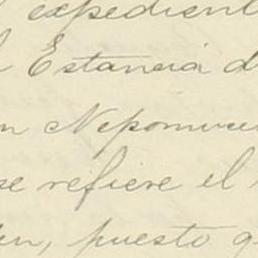 expedient
Estancia d
n Nepomuce
se refiere el
en, puesto q